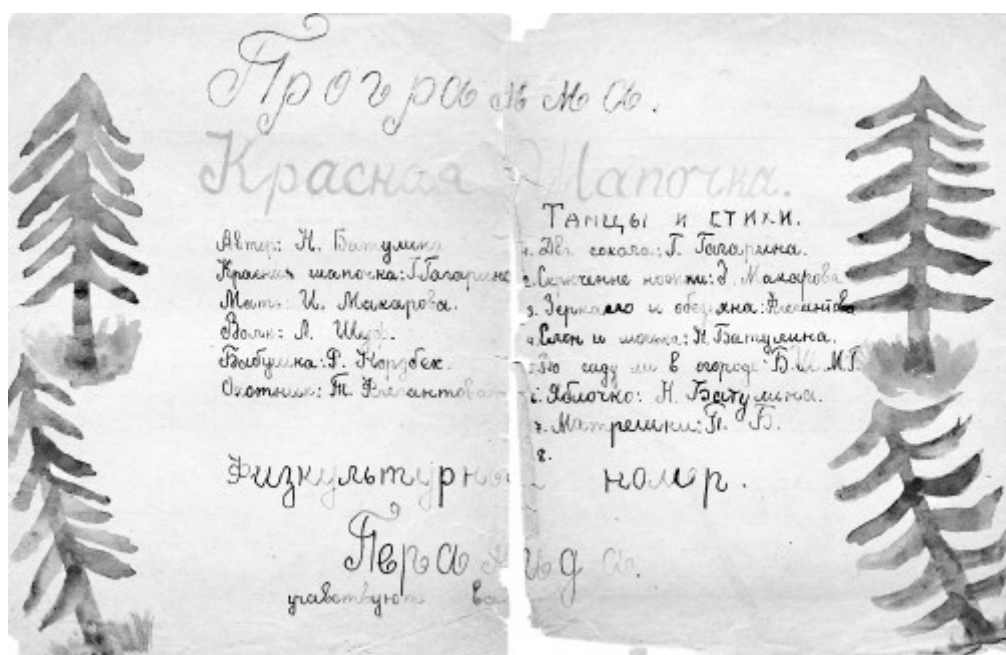 Программа.
Красная Шапочка.
Автор: Н. Батулина
Красная шапочка: Г. Гагарина
Мать: И. Макарова.
Волк: Л. Шуф.
Бабушка: Г. Нордбек.
Охотник: Т. Элегантова
Танцы и стихи.
1. Два сокола: Г. Гагарина.
2. Макарова
3. Зеркало и обезьяна: Элегантова
4. Слон и моська: Н. Батулина.
5. Во саду ли в огороде: Б. Ш. М. Г.
6. Яблочко: Н. Батулина.
7. Матрешки: Г. Б.
8.
Физкультурный номер.
Перамида.